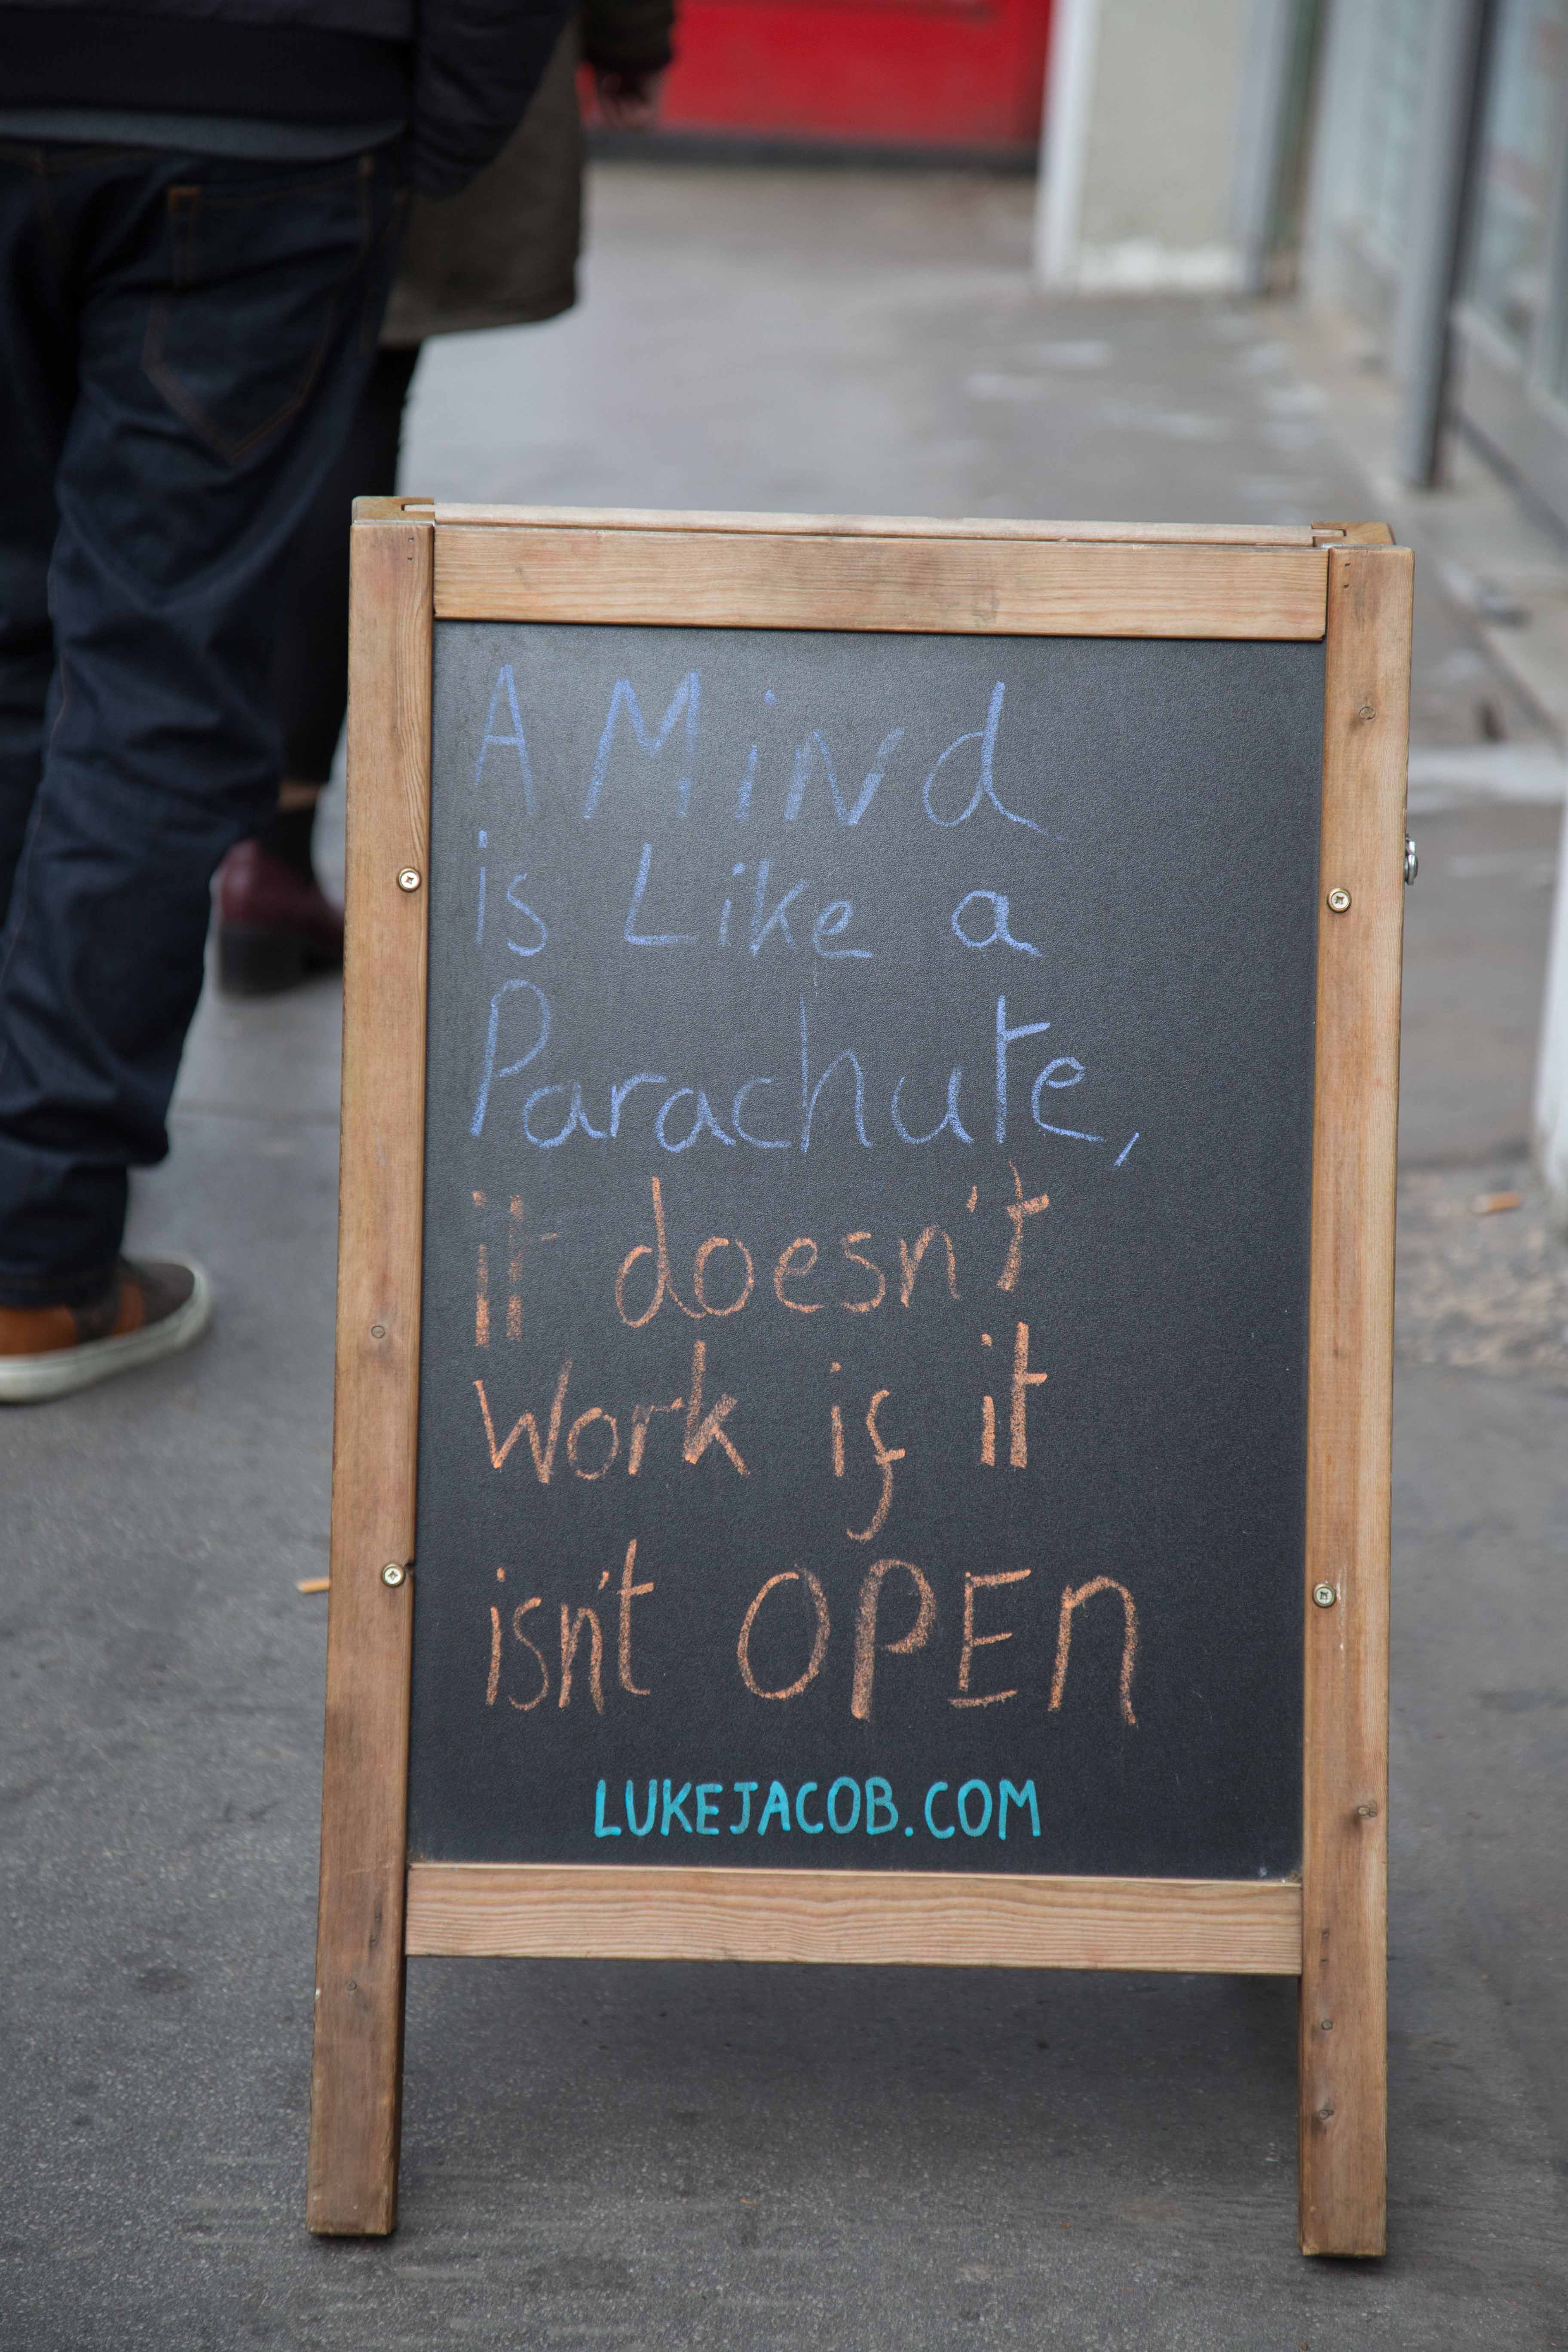 A MiNd
is Like a
Parachute,
it doesn't
Work if it
isn't OPEn
LUKEJACOB.COM